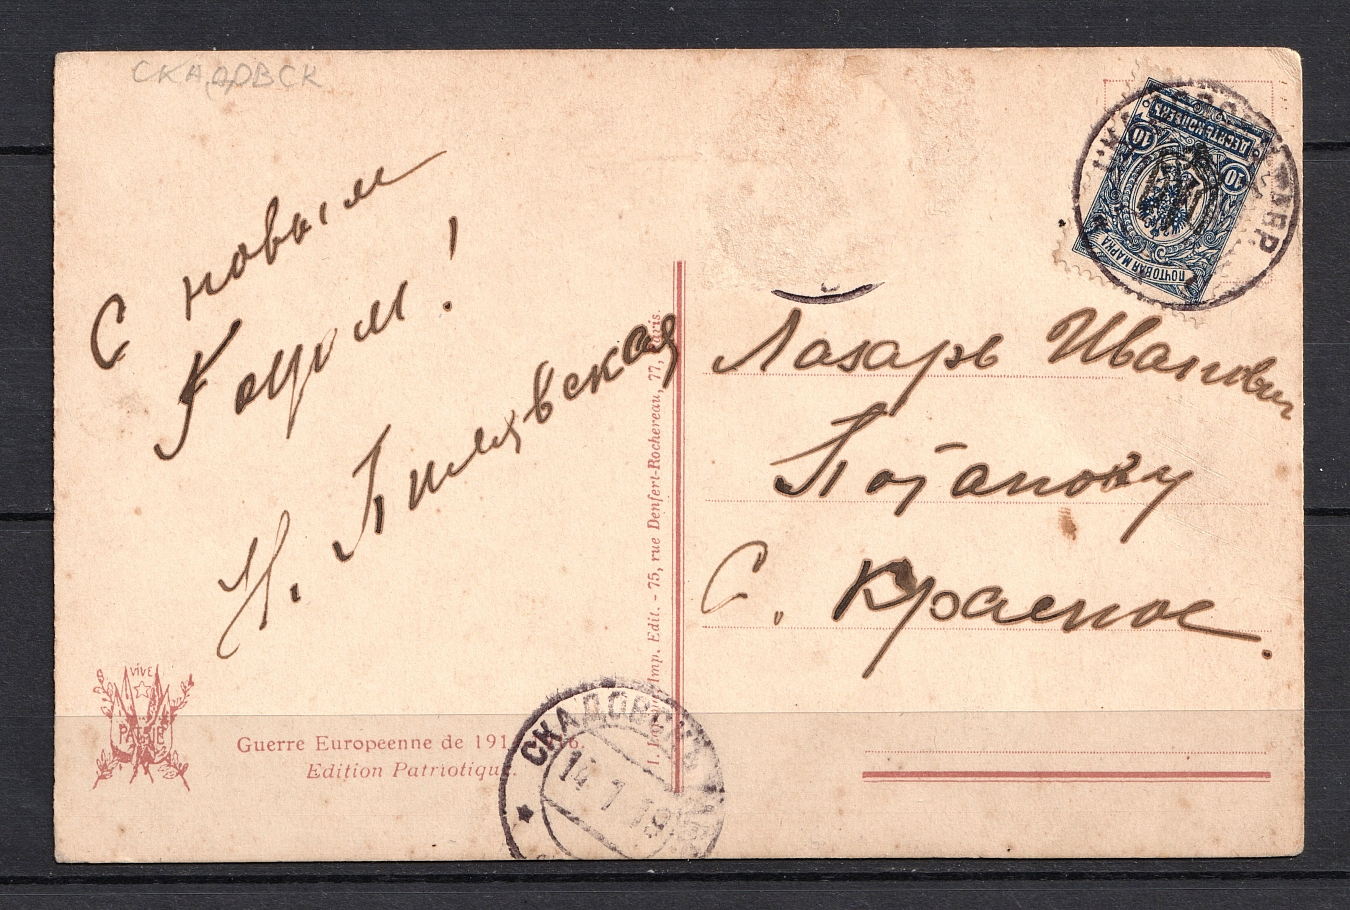 СКАДОВСК
С новым
Годом!
Н.
Лазарь Иванович
Потапову
С. Красное.
ДЕСЯТЬ КОПѢЕКЪ
10 10
ПОЧТОВАЯ МАРКА
ТАВР
VIVE
PATRIE
Guerre Europeenne de 191 6.
Edition Patriotique.
Imp. Edit. - 75, rue Denfert-Rochereau, 77, Paris.
СКАДОВСКЪ
14 1 19